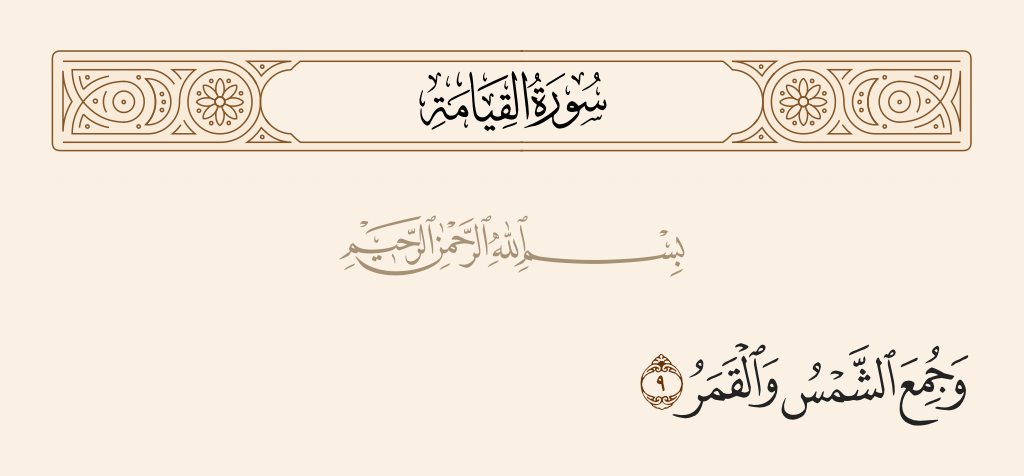 سُورَةُ القِيَامَةِ
بِسْمِ ٱللَّهِ ٱلرَّحْمَٰنِ ٱلرَّحِيمِ
وَجُمِعَ ٱلشَّمْسُ وَٱلْقَمَرُ ٩